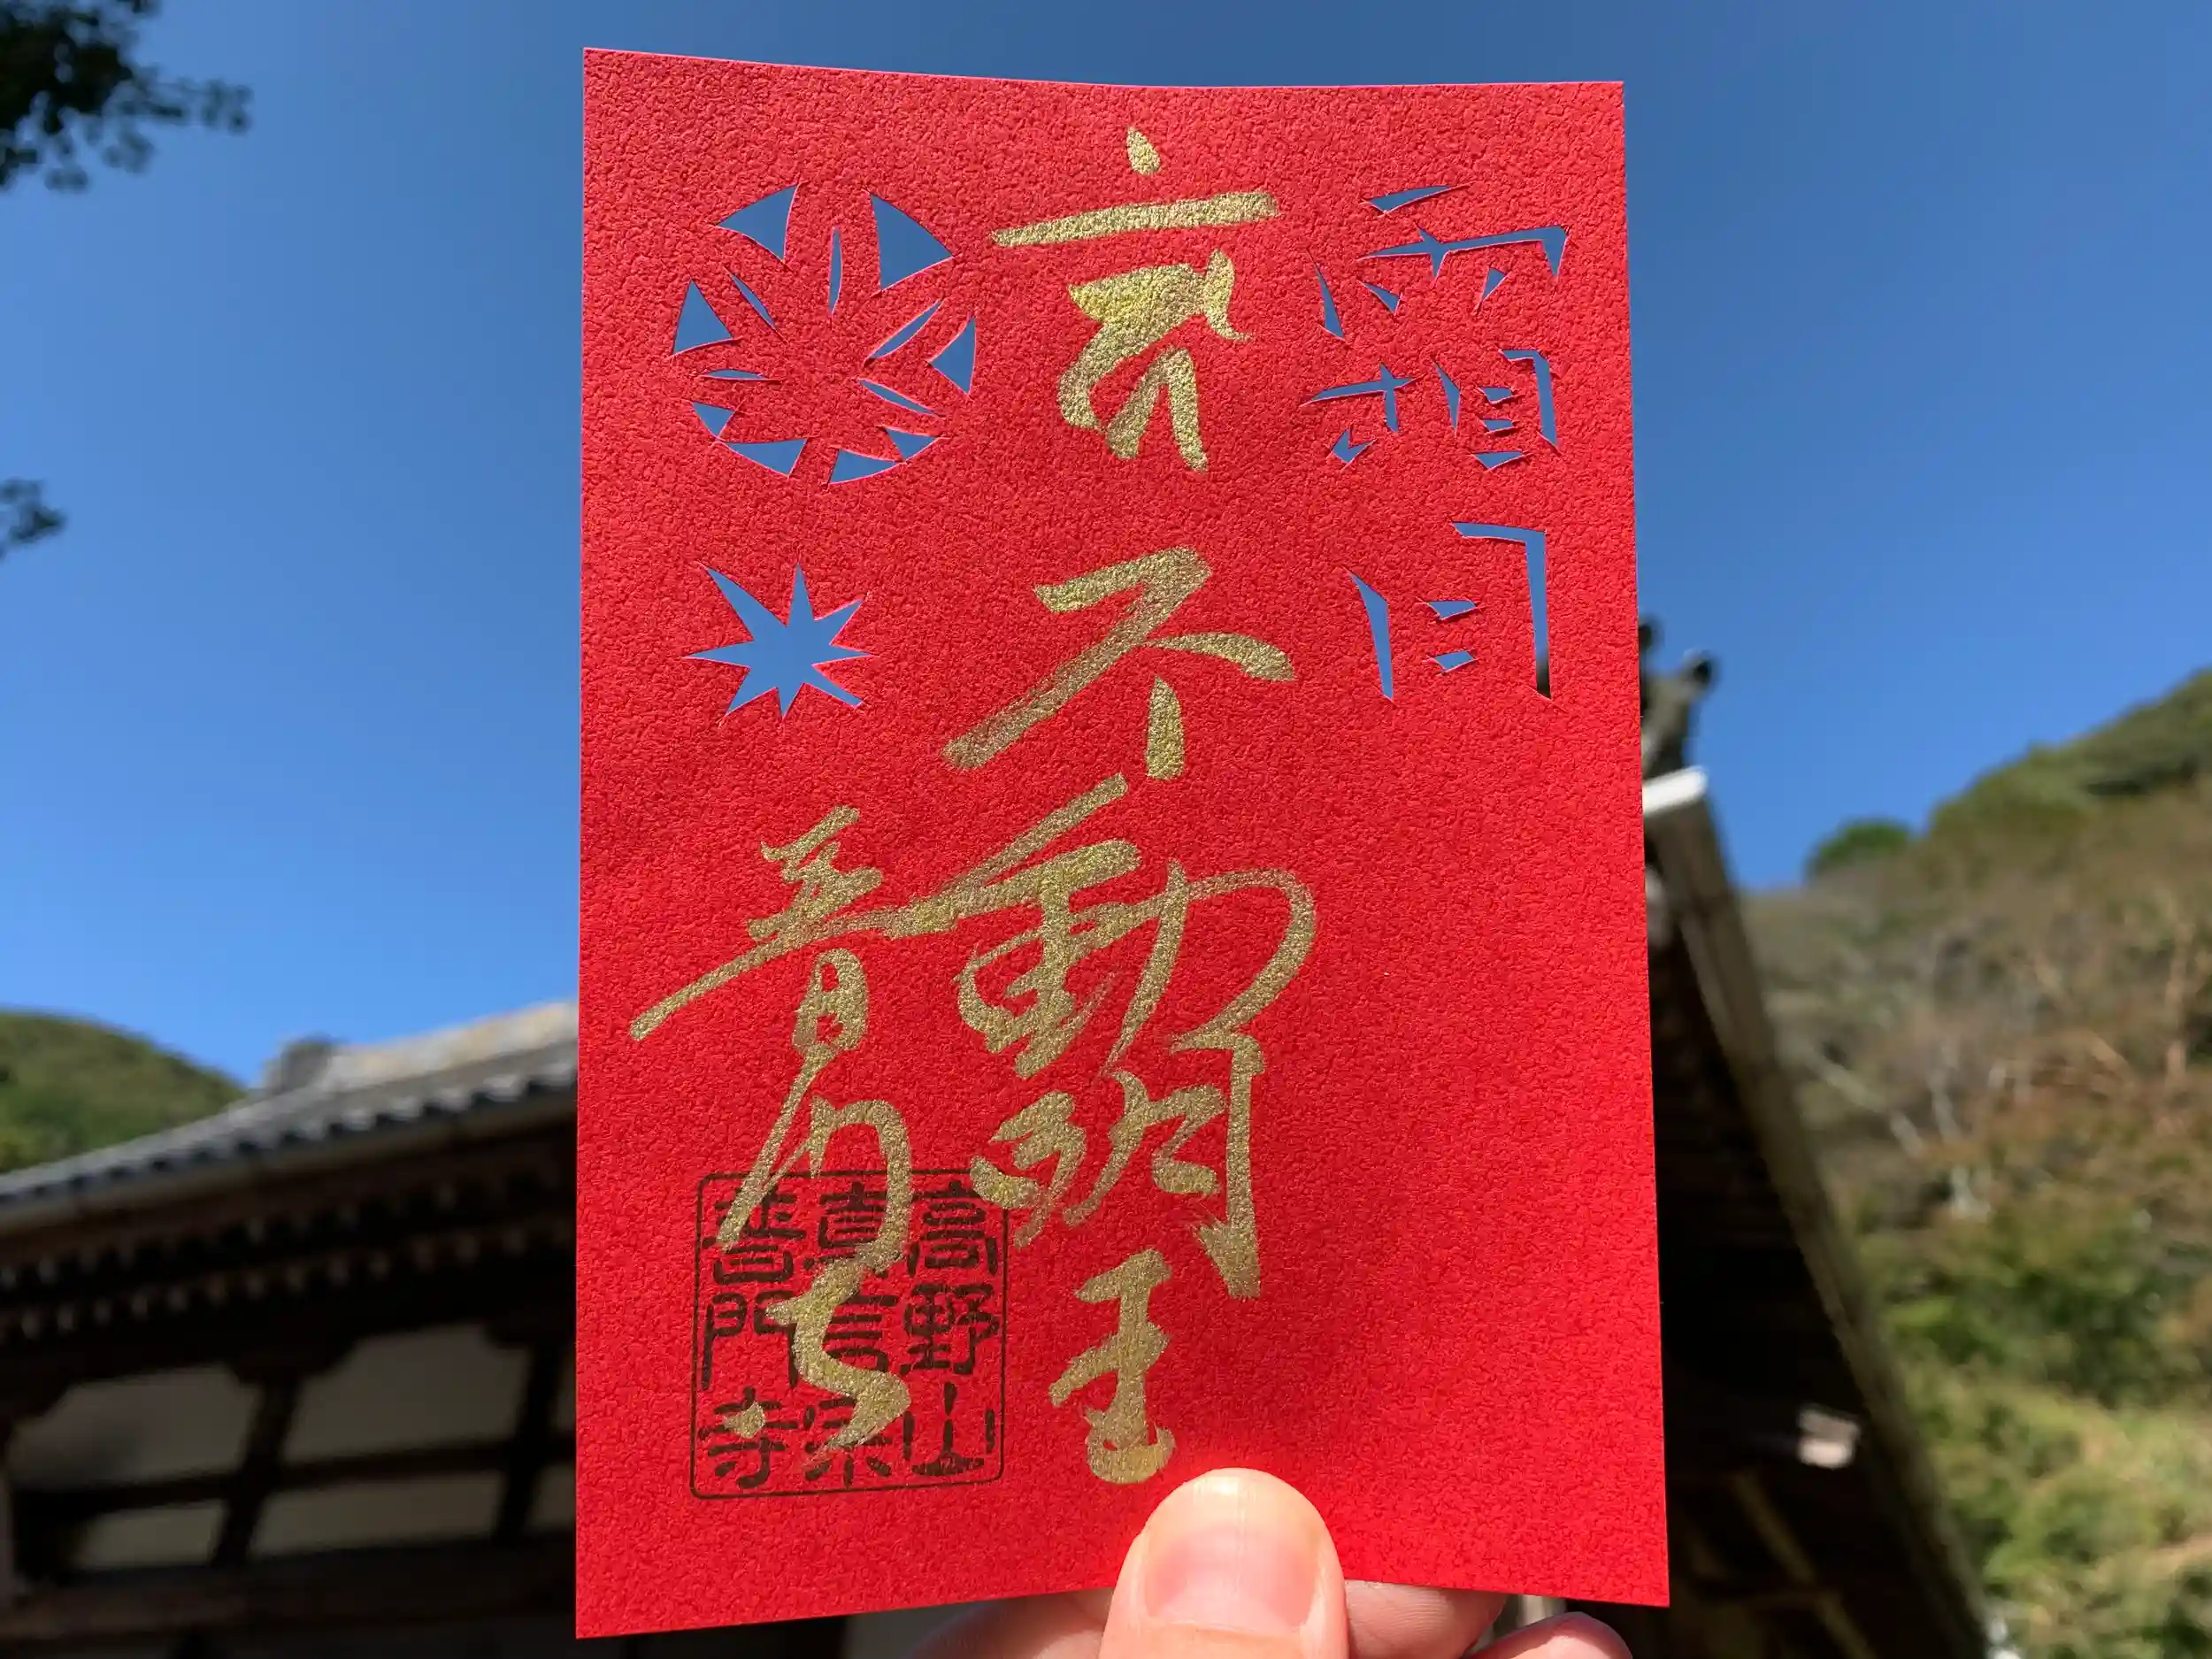 霜月
不動明王
普門寺
高野山
真言宗
普門寺